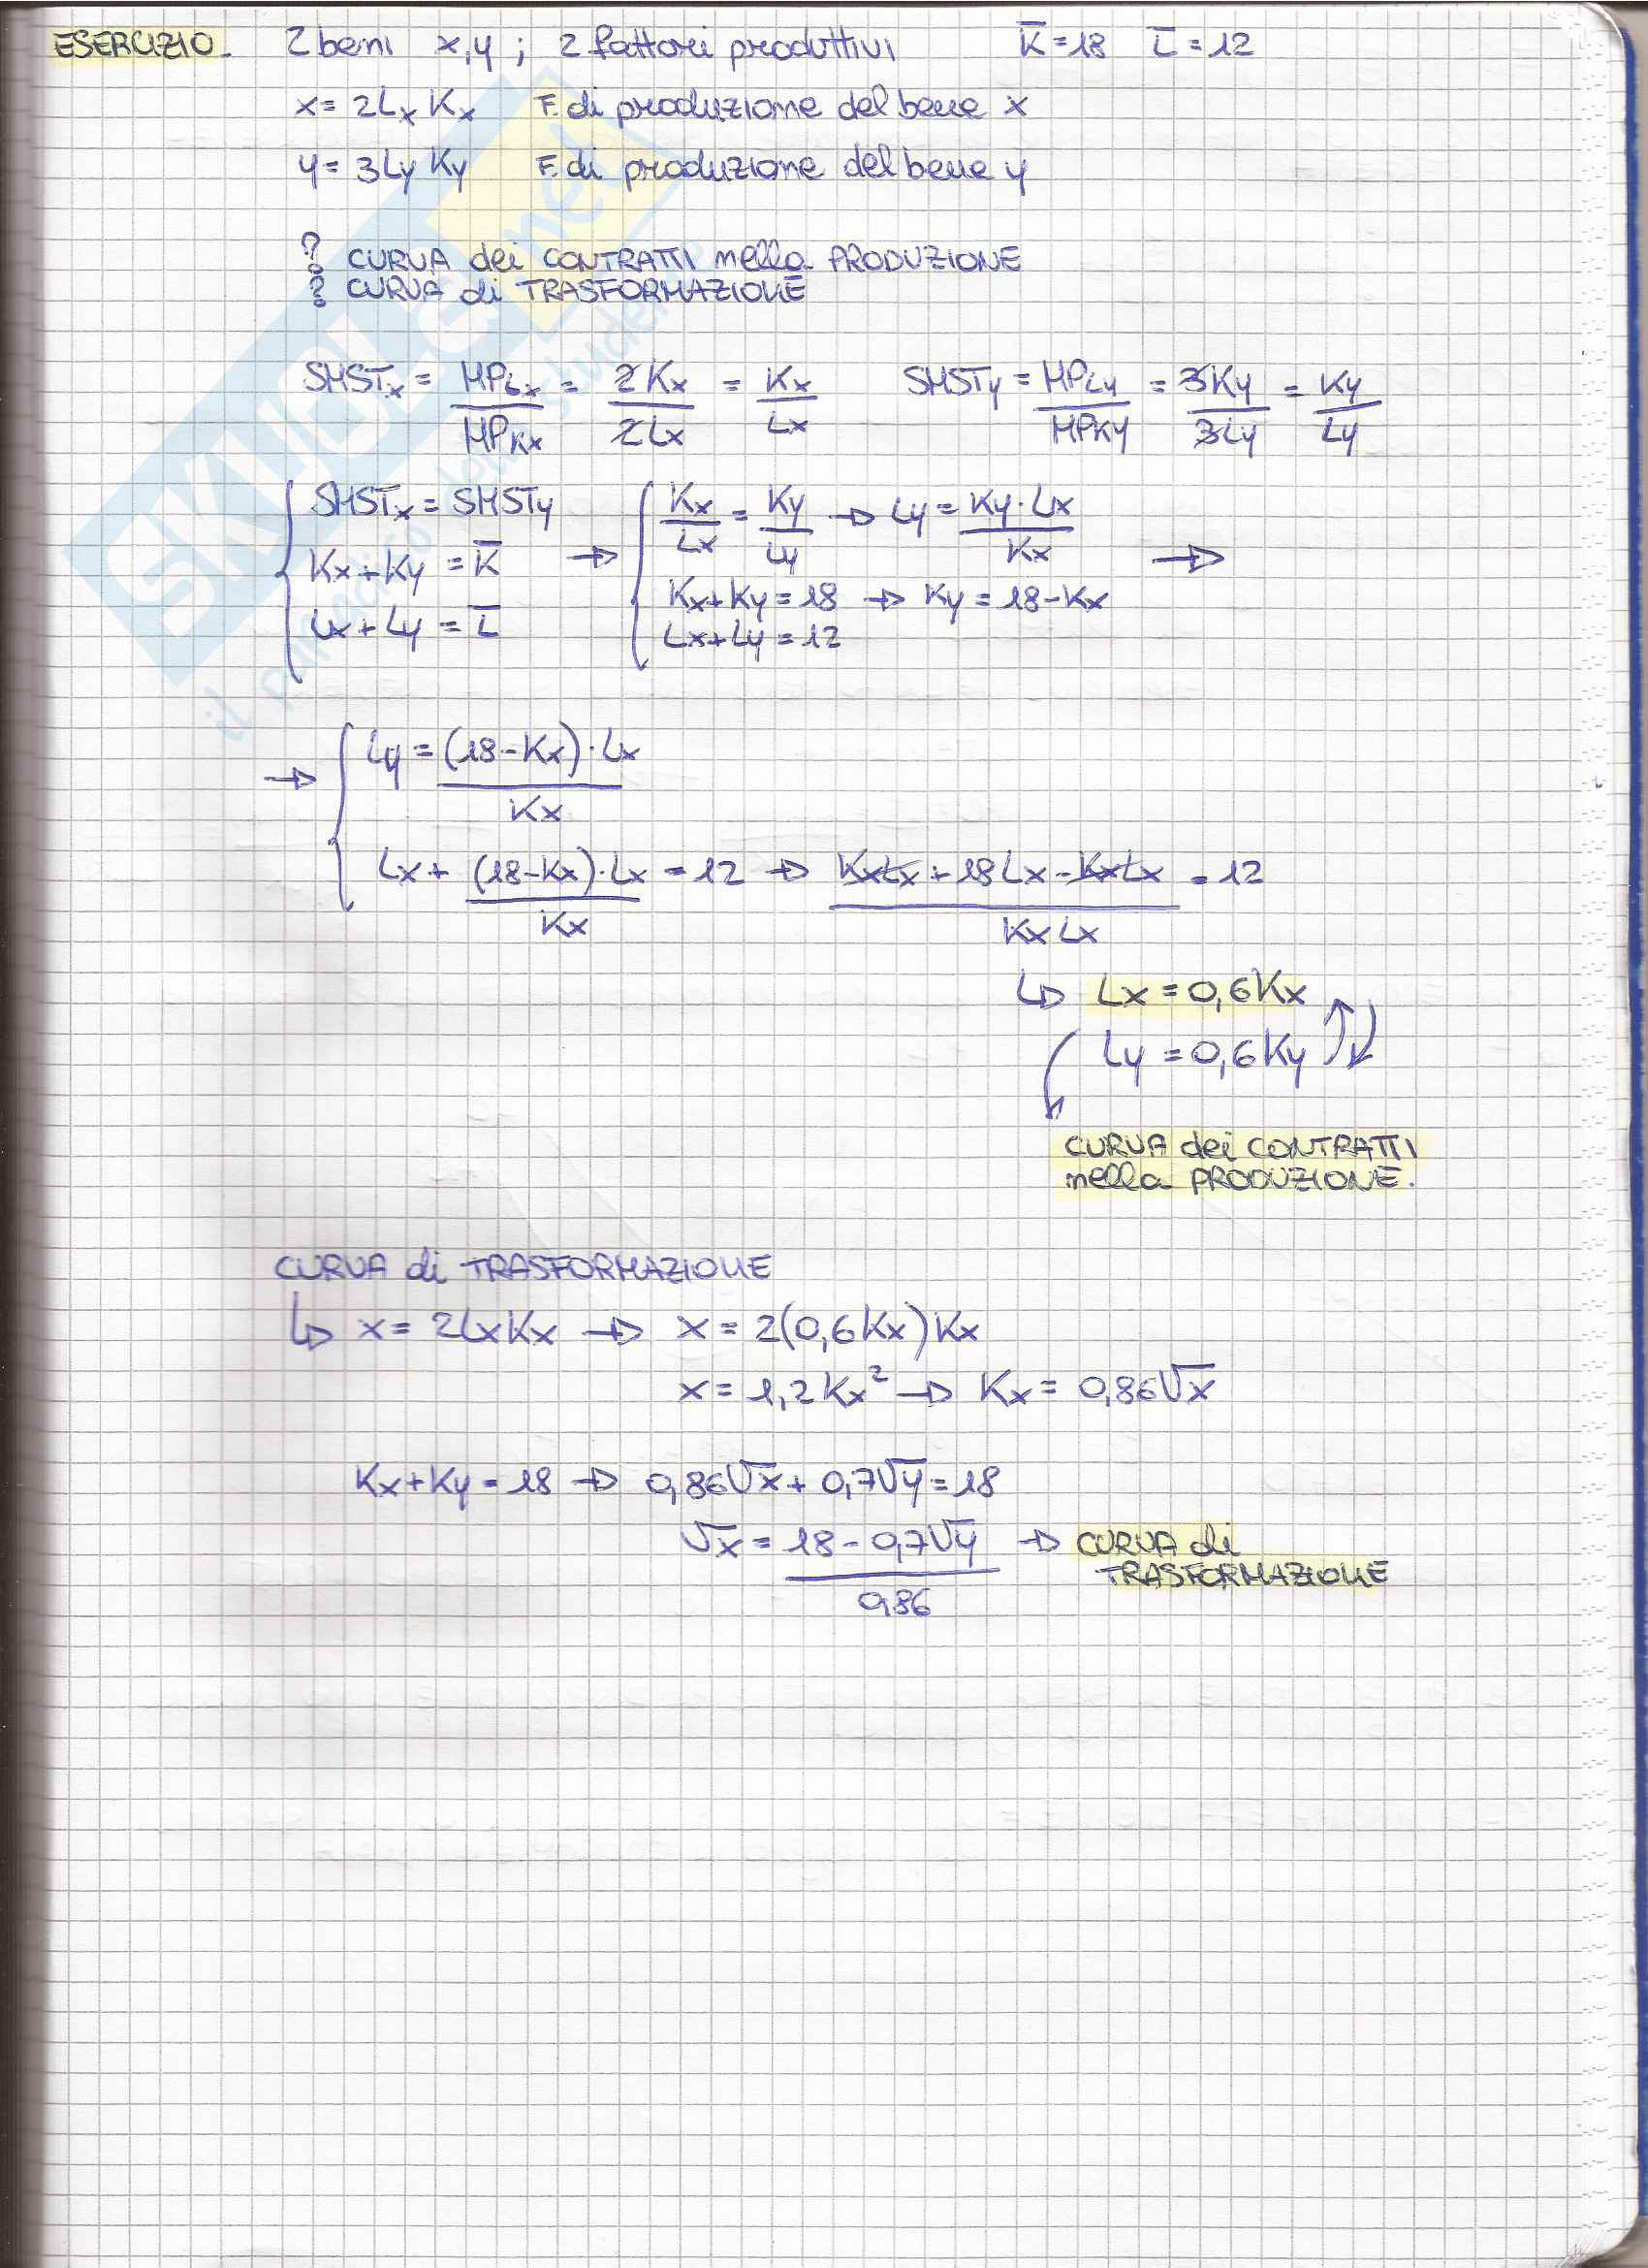 ESERCIZIO. 2 beni x,y ; 2 fattori produttivi K̅=18 L̅=12
x= 2Lx Kx F. di produzione del bene x
y= 3Ly Ky F. di produzione del bene y
? CURVA dei CONTRATTI nella PRODUZIONE
? CURVA di TRASFORMAZIONE
SMSTx = MPLx / MPKx = 2Kx / 2Lx = Kx / Lx SMSTy = MPLy / MPKy = 3Ky / 3Ly = Ky / Ly
SMSTx = SMSTy → Kx / Lx = Ky / Ly → Ly = Ky·Lx / Kx →
Kx+Ky = K̅ Kx+Ky = 18 → Ky = 18-Kx
Lx+Ly = L̅ Lx+Ly = 12
→ Ly = (18-Kx)·Lx / Kx
Lx + (18-Kx)·Lx / Kx = 12 → KxLx + 18Lx - KxLx / Kx Lx = 12
↳ Lx = 0,6Kx
Ly = 0,6Ky
CURVA dei CONTRATTI
nella PRODUZIONE.
CURVA di TRASFORMAZIONE
↳ x= 2LxKx → x = 2(0,6Kx)Kx
x = 1,2Kx² → Kx = 0,86√x
Kx+Ky = 18 → 0,86√x + 0,7√y = 18
√x = 18 - 0,7√y / 0,86 → CURVA di
TRASFORMAZIONE
SKUOLA.net
il paradiso dello studente